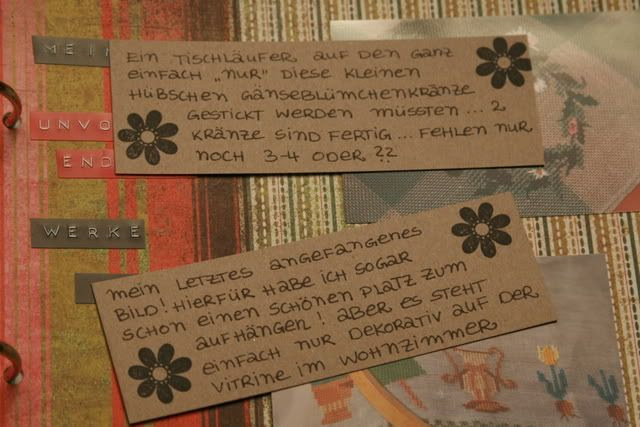 MEIN
EIN TISCHLÄUFER AUF DEN GANZ
EINFACH „NUR" DIESE KLEINEN
HÜBSCHEN GÄNSEBLÜMCHENKRÄNZE
GESTICKT WERDEN MÜSSTEN... 2
KRÄNZE SIND FERTIG... FEHLEN NUR
NOCH 3-4 ODER ??
UNVO
END
WERKE
MEIN LETZTES ANGEFANGENES
BILD! HIERFÜR HABE ICH SOGAR
SCHON EINEN SCHÖNEN PLATZ ZUM
AUFHÄNGEN! ABER ES STEHT
EINFACH NUR DEKORATIV AUF DER
VITRINE IM WOHNZIMMER